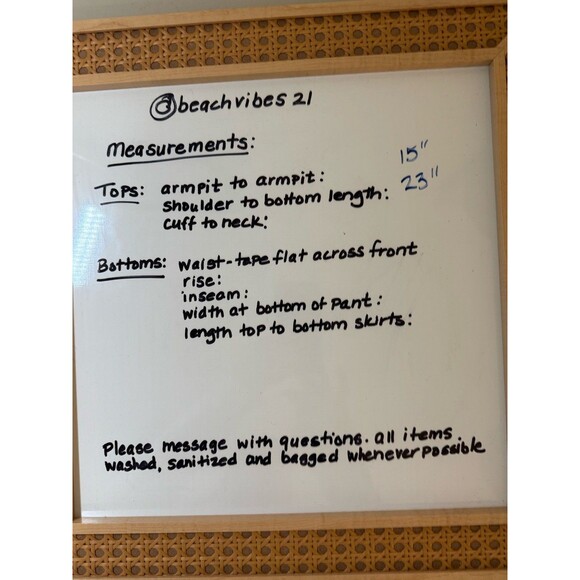 @beachvibes 21
Measurements:
Tops: armpit to armpit: 15"
shoulder to bottom length: 23"
cuff to neck:
Bottoms: waist-tape flat across front
rise:
inseam:
width at bottom of pant:
length top to bottom skirts:
Please message with questions. all items
washed, sanitized and bagged whenever possible